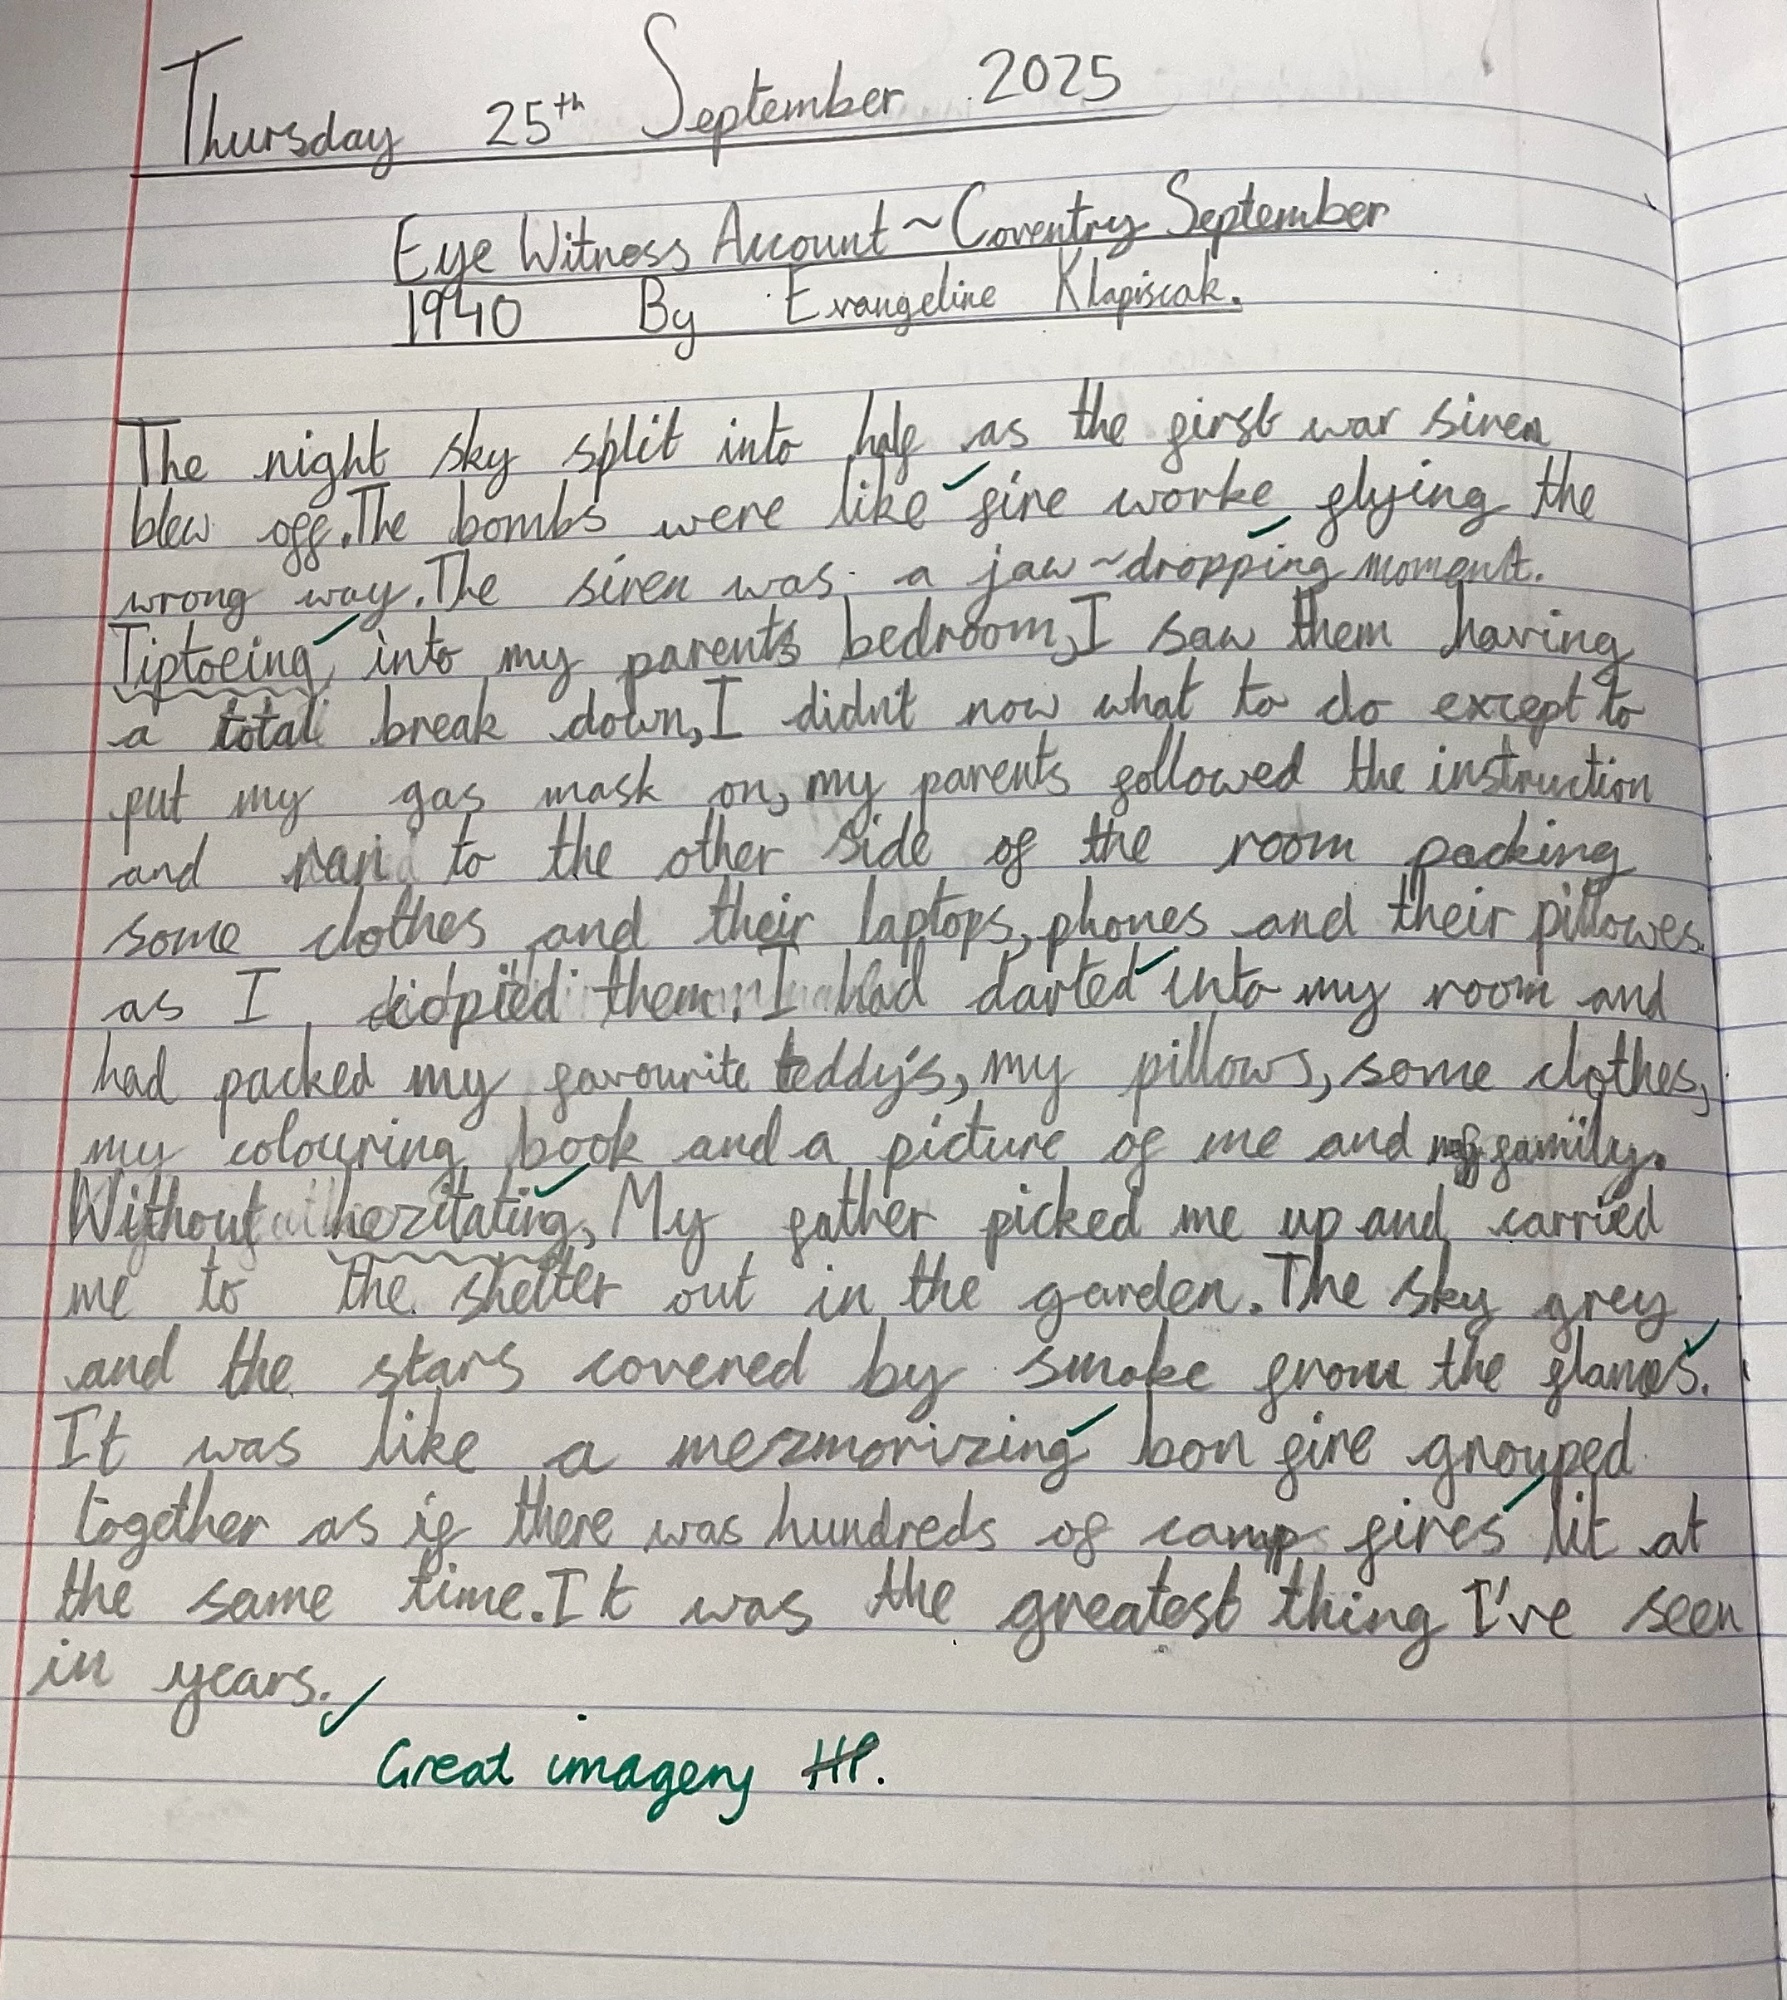 Thursday 25th September 2025
Eye Witness Account ~ Coventry September
1940 By Evangeline Klapiscak.
The night sky split into half as the first war siren
blew off. The bombs were like fire worke flying the
wrong way. The siren was a jaw~dropping moment.
Tiptoeing into my parents bedroom, I saw them having
a total break down, I didn't now what to do except to
put my gas mask on, my parents followed the instruction
and ran to the other side of the room packing
some clothes and their laptops, phones and their pillowes.
as I them. I had darted into my room and
had packed my favourite teddy's, my pillows, some clothes,
my colouring book and a picture of me and my family.
Without hezitating, My father picked me up and carried
me to the shelter out in the garden. The sky grey
and the stars covered by smoke from the flames.
It was like a mezmorizing bon fire grouped
together as if there was hundreds of camp fires lit at
the same time. It was the greatest thing I've seen
in years.
Great imagery HP.